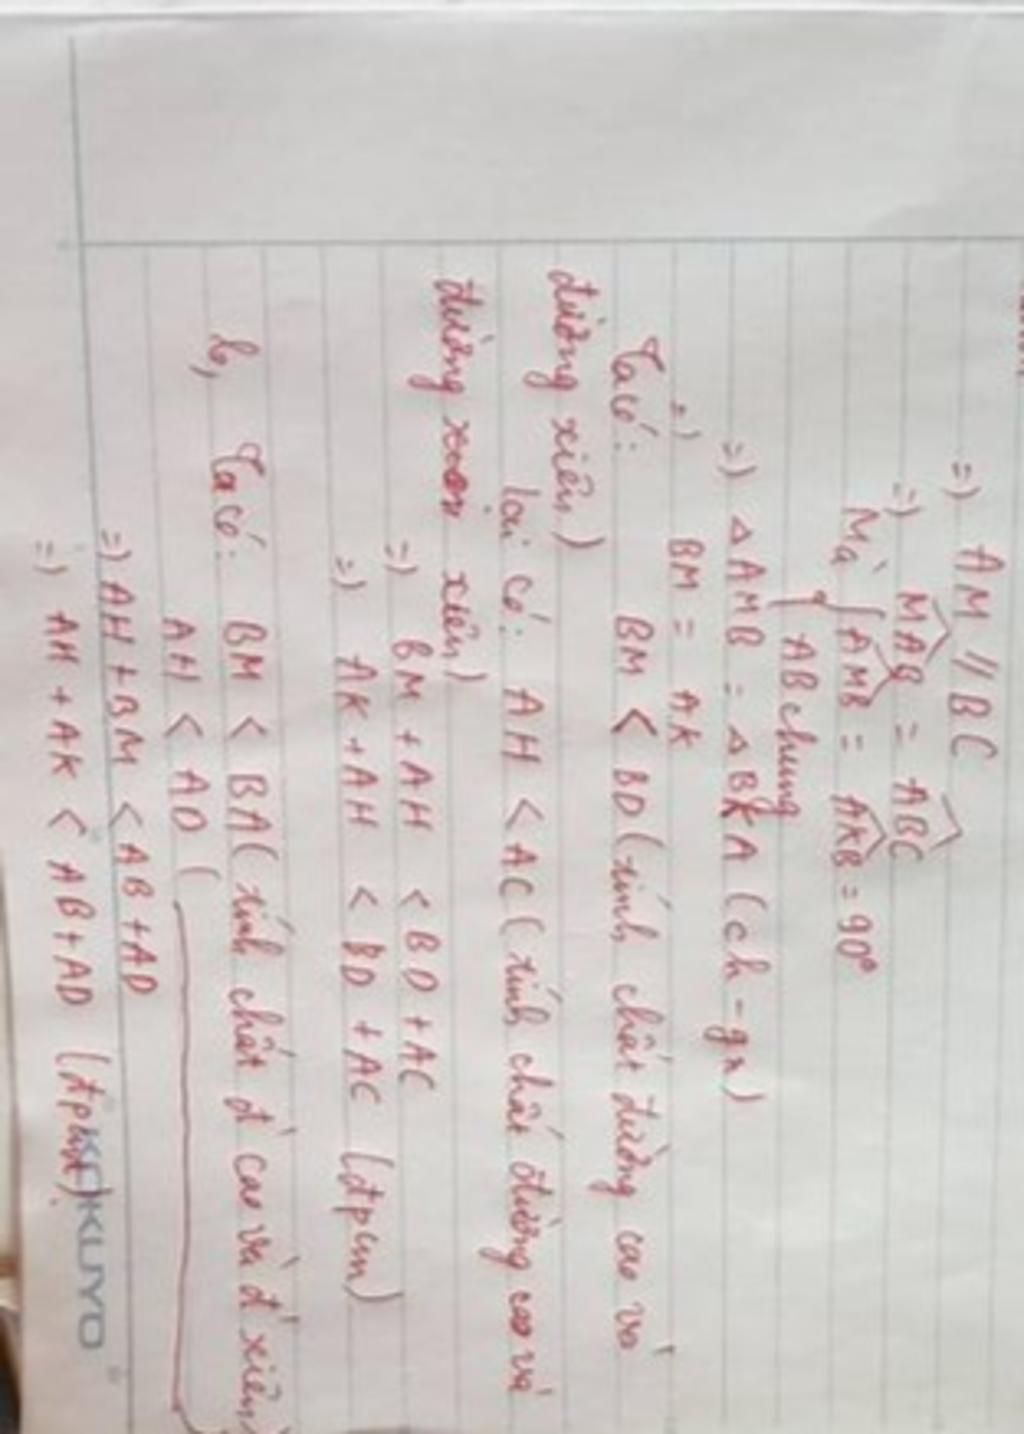 =) AM // BC
=) MAB = ABC
Mà { AMB = AKB = 90°
AB chung
=) △AMB = △BKA (ch - gn)
=) BM = AK
Ta có: BM < BD (tính chất đường cao và
đường xiên)
lại có: AH < AC (tính chất đường cao và
đường xiên)
=) BM + AH < BD + AC
=) AK + AH < BD + AC (đpcm)
b, Ta có: BM < BA (tính chất đ cao và đ xiên)
AH < AD (
=) AH + BM < AB + AD
=) AH + AK < AB + AD (đpcm).
KOKUYO